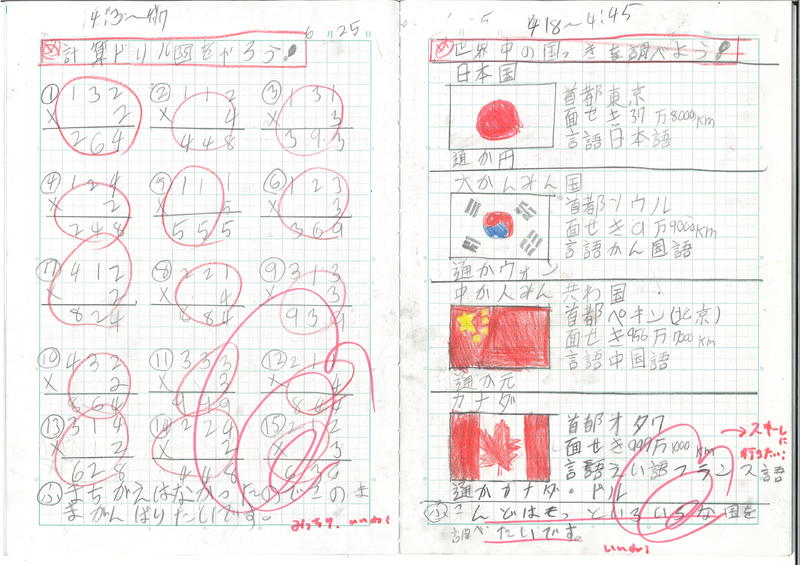 4:3〜47
6 25
め 計算ドリル⑳をやろう!
① 132
× 2
264
② 112
× 4
448
③ 131
× 3
393
④ 124
× 2
248
⑤ 111
× 5
555
⑥ 123
× 3
369
⑦ 412
× 2
824
⑧ 221
× 4
884
⑨ 313
× 3
939
⑩ 432
× 2
864
⑪ 333
× 3
999
⑫ 211
× 4
844
⑬ 314
× 2
628
⑭ 224
× 2
448
⑮ 212
× 3
636
ふ まちがえはなかったのでこのま
まがんばりたいです。
みっちり。 いいね!
5
4:18〜4:45
め 世界中の国っきを調べよう!
日本国
首都東京
面せき37万8000km
言語日本語
通か円
大かんみん国
首都ソウル
面せき9万9000km
言語かん国語
通かウォン
中か人みん共わ国
首都ペキン(北京)
面せき956万7000km
言語中国語
通か元
カナダ
首都オタワ
面せき997万1000km
言語えい語フランス語
通かカナダ・ドル
→スキーしに
行きたい!
ふ こんどはもっといろいろな国を
調べたいです。
いいね!